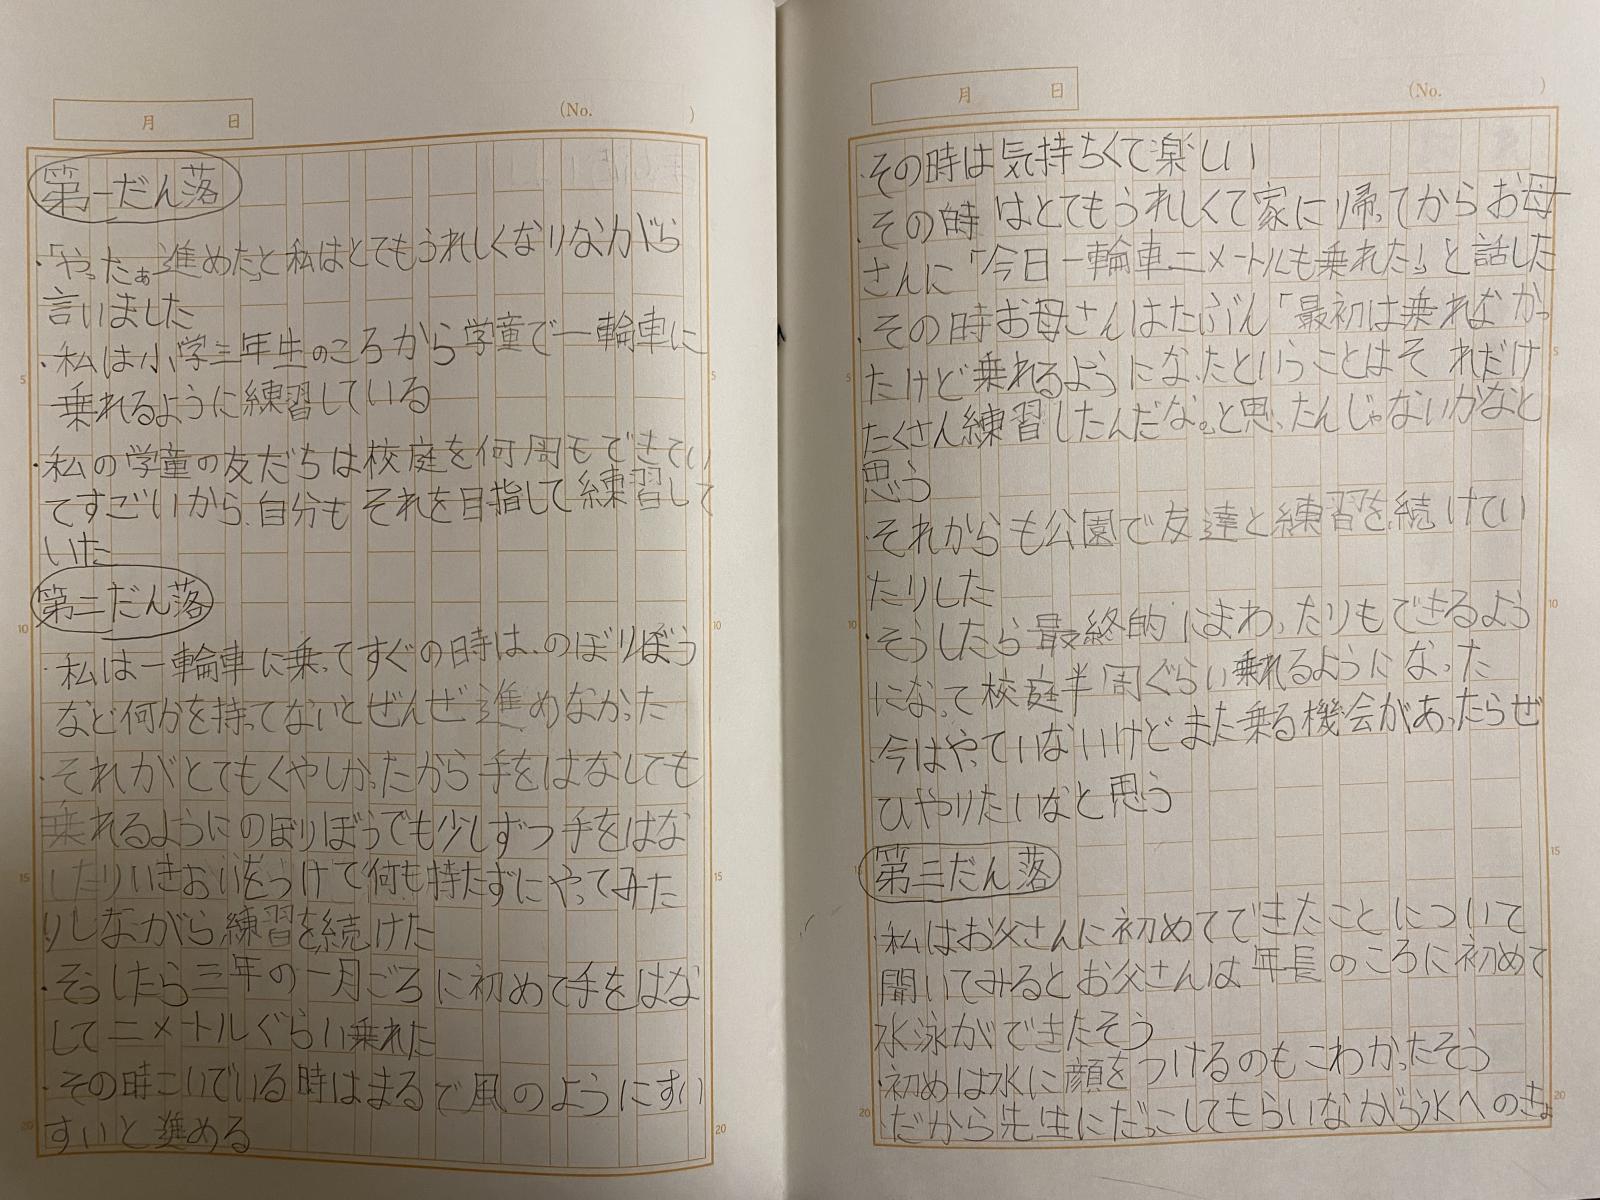 月 日 (No. )
第一だん落
・「やったぁ進めた」と私はとてもうれしくなりながら
言いました
・私は小学三年生のころから学童で一輪車に
乗れるように練習している
・私の学童の友だちは校庭を何周もできてい
てすごいから、自分もそれを目指して練習して
いた
第二だん落
・私は一輪車に乗ってすぐの時は、のぼりぼう
など何かを持ってないとぜんぜん進めなかった
・それがとてもくやしかったから手をはなしても
乗れるようにのぼりぼうでも少しずつ手をはな
したりいきおいをつけて何も持たずにやってみた
りしながら練習を続けた
・そうしたら三年の一月ごろに初めて手をはな
して二メートルぐらい乗れた
・その時こいでいる時はまるで風のようにすい
すいと進める
月 日 (No. )
・その時は気持ちくて楽しい
・その時はとてもうれしくて家に帰ってからお母
さんに「今日一輪車二メートルも乗れた！」と話した
・その時お母さんはたぶん「最初は乗れなかっ
たけど乗れるようになったということはそれだけ
たくさん練習したんだな。」と思ったんじゃないかなと
思う
・それからも公園で友達と練習を続けてい
たりした
・そうしたら最終的にまわったりもできるよう
になって校庭半周ぐらい乗れるようになった
・今はやっていないけどまた乗る機会があったらぜ
ひやりたいなと思う
第三だん落
・私はお父さんに初めてできたことについて
聞いてみるとお父さんは年長のころに初めて
水泳ができたそう
・初めは水に顔をつけるのもこわかったそう
・だから先生にだっこしてもらいながら水へのきょ
5
10
15
20
5
10
15
20
5
10
15
20
5
10
15
20